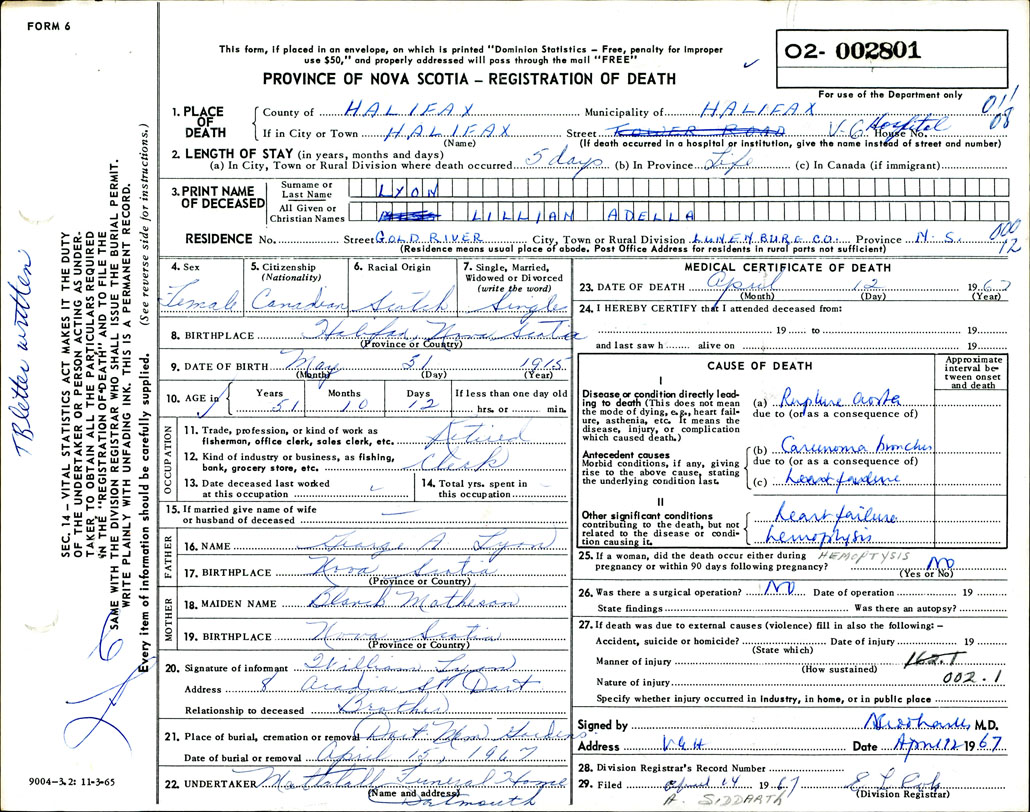 FORM 6
This form, if placed in an envelope, on which is printed "Dominion Statistics – Free, penalty for improper
use $50," and properly addressed will pass through the mail "FREE"
02- 002801
PROVINCE OF NOVA SCOTIA – REGISTRATION OF DEATH
For use of the Department only
011
08
1. PLACE OF DEATH
County of HALIFAX Municipality of HALIFAX
If in City or Town HALIFAX Street TOWER ROAD V.G. Hospital House No.
(Name) (If death occurred in a hospital or institution, give the name instead of street and number)
2. LENGTH OF STAY (in years, months and days)
(a) In City, Town or Rural Division where death occurred 5 days (b) In Province Life (c) In Canada (if immigrant)
3. PRINT NAME OF DECEASED
Surname or Last Name LYON
All Given or Christian Names LILLIAN ADELLA
RESIDENCE No. Street GOLD RIVER City, Town or Rural Division LUNENBURG CO. Province N.S.
000
12
(Residence means usual place of abode. Post Office Address for residents in rural parts not sufficient)
4. Sex Female
5. Citizenship (Nationality) Canadian
6. Racial Origin Scotch
7. Single, Married, Widowed or Divorced (write the word) Single
8. BIRTHPLACE Halifax, Nova Scotia
(Province or Country)
9. DATE OF BIRTH May 31 1915
(Month) (Day) (Year)
10. AGE in Years 51 Months 10 Days 12 If less than one day old hrs. or min.
OCCUPATION
11. Trade, profession, or kind of work as fisherman, office clerk, sales clerk, etc. Retired
12. Kind of industry or business, as fishing, bank, grocery store, etc. Clerk
13. Date deceased last worked at this occupation
14. Total yrs. spent in this occupation
15. If married give name of wife or husband of deceased
FATHER
16. NAME George A. Lyon
17. BIRTHPLACE Nova Scotia
(Province or Country)
MOTHER
18. MAIDEN NAME Blanch Matheson
19. BIRTHPLACE Nova Scotia
(Province or Country)
20. Signature of informant William Lyon
Address 8 Acadia St Dart
Relationship to deceased Brother
21. Place of burial, cremation or removal Dart Mem Gardens
Date of burial or removal April 15, 1967
22. UNDERTAKER Mattatall Funeral Home
(Name and address) Dartmouth
MEDICAL CERTIFICATE OF DEATH
23. DATE OF DEATH April 12 1967
(Month) (Day) (Year)
24. I HEREBY CERTIFY that I attended deceased from:
19 to 19
and last saw h alive on 19
CAUSE OF DEATH
Approximate interval between onset and death
I
Disease or condition directly leading to death (This does not mean the mode of dying, e.g., heart failure, asthenia, etc. It means the disease, injury, or complication which caused death.)
(a) Rupture aorta
due to (or as a consequence of)
Antecedent causes
Morbid conditions, if any, giving rise to the above cause, stating the underlying condition last.
(b) Carcinoma bronchus
due to (or as a consequence of)
(c) heart failure
II
Other significant conditions contributing to the death, but not related to the disease or condition causing it.
heart failure
hemophysis
HEMOPTYSIS
25. If a woman, did the death occur either during pregnancy or within 90 days following pregnancy? NO
(Yes or No)
26. Was there a surgical operation? NO Date of operation 19
State findings Was there an autopsy?
27. If death was due to external causes (violence) fill in also the following: –
Accident, suicide or homicide? Date of injury 19
(State which)
Manner of injury 162.1
(How sustained)
Nature of injury 002.1
Specify whether injury occurred in Industry, in home, or in public place
Signed by M.D.
Address V.G.H Date April 12 1967
28. Division Registrar's Record Number
29. Filed April 14 1967
(Division Registrar)
A. SIDDARTH
TB letter written
SEC. 14 – VITAL STATISTICS ACT MAKES IT THE DUTY
OF THE UNDERTAKER OR PERSON ACTING AS UNDER-
TAKER TO OBTAIN ALL THE PARTICULARS REQUIRED
IN THE "REGISTRATION OF DEATH" AND TO FILE THE
SAME WITH THE DIVISION REGISTRAR WHO SHALL ISSUE THE BURIAL PERMIT.
WRITE PLAINLY WITH UNFADING INK. THIS IS A PERMANENT RECORD.
Every item of information should be carefully supplied. (See reverse side for instructions.)
9004-3.2: 11-3-65